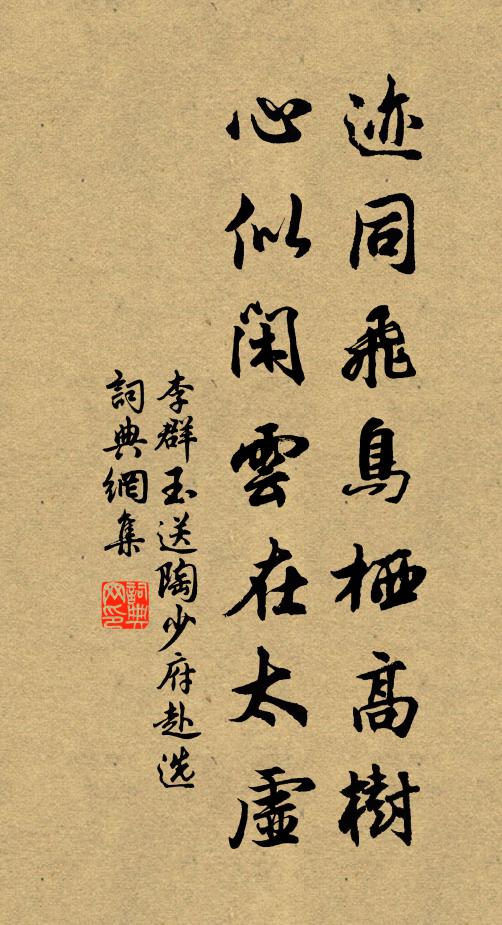 迹同飛鳥栖高樹
心似閑雲在太虛
李群玉送陶少府赴选
詞典網集
詞典网印